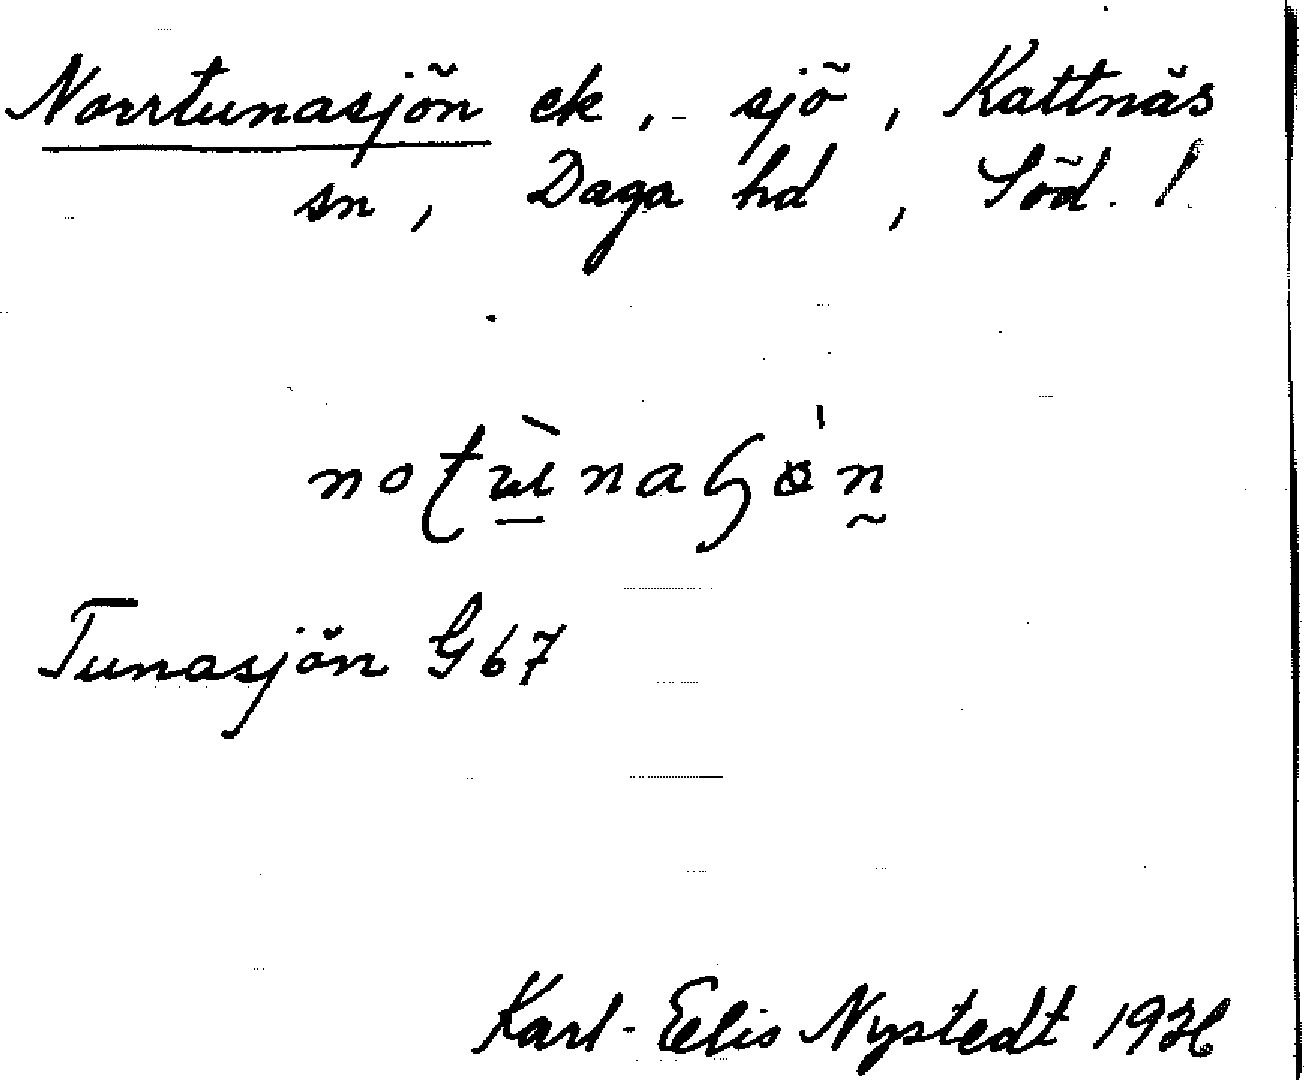 Norrtunasjön ek, sjö, Kattnäs
sn, Daga hd, Söd. /
Tunasjön G 67
Karl-Elis Nystedt 1936